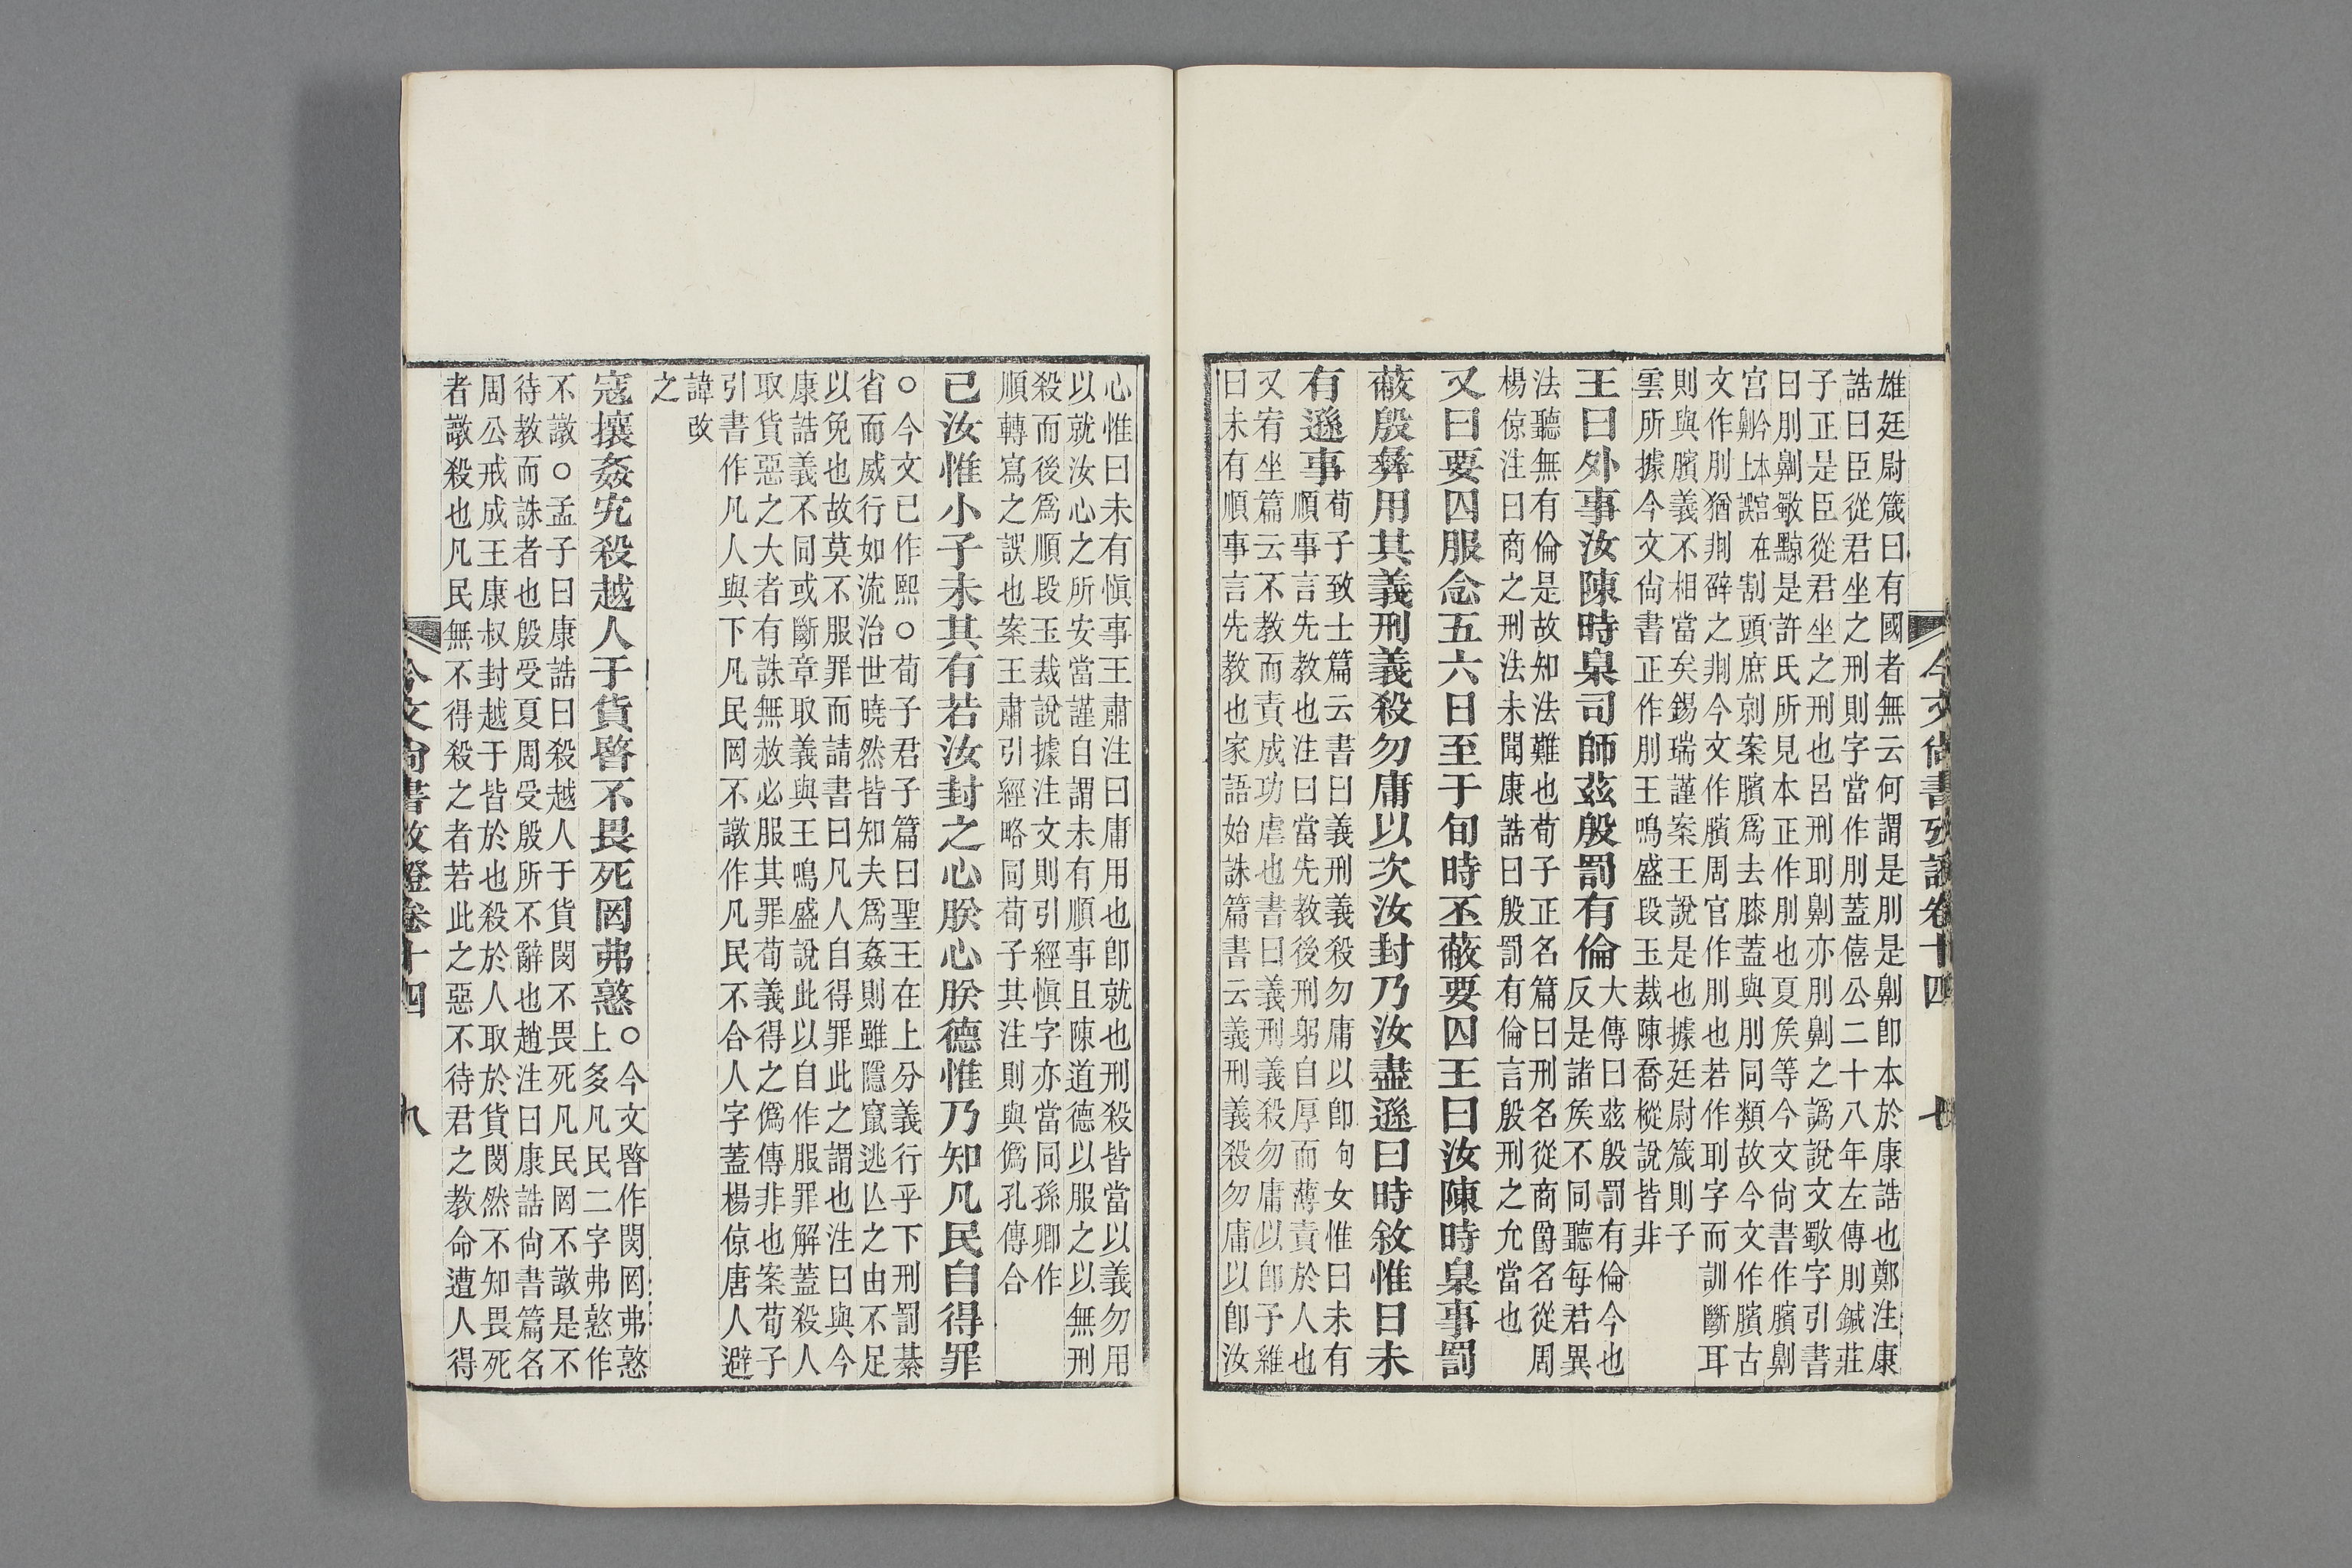 雄廷尉箴曰有國者無云何謂是刖是劓卽本於康誥也鄭注康
誥曰臣從君坐之刑則字當作刖蓋僖公二十八年左傳刖鍼莊
子正是臣從君坐之刑也呂刑刵劓亦刖劓之譌說文斀字引書
曰刖劓斀黥是許氏所見本正作刖也夏矦等今文尙書作臏劓
宮割頭庶剠案臏爲去膝蓋與刖同類故今文作臏古
文作刖猶剕辟之剕今文作臏周官作刖也若作刵字而訓斷耳
則與臏義不相當矣錫瑞謹案王說是也據廷尉箴則子
雲所據今文尙書正作刖王鳴盛段玉裁陳喬樅說皆非
王曰外事汝陳時臬司師茲殷罰有倫
大傳曰茲殷罰有倫今也
反是諸矦不同聽每君異
法聽無有倫是故知法難也荀子正名篇曰刑名從商爵名從周
楊倞注曰商之刑法未聞康誥曰殷罰有倫言殷刑之允當也
又曰要囚服念五六日至于旬時丕蔽要囚王曰汝陳時臬事罰
蔽殷彝用其義刑義殺勿庸以次汝封乃汝盡遜曰時敘惟曰未
有遜事
荀子致士篇云書曰義刑義殺勿庸以卽句女惟曰未有
順事言先教也注曰當先教後刑躬自厚而薄責於人也
又宥坐篇云不教而責成功虐也書曰義刑義殺勿庸以卽予維
曰未有順事言先教也家語始誅篇書云義刑義殺勿庸以卽汝
今文尙書攷證卷十四
七
心惟曰未有愼事王肅注曰庸用也卽就也刑殺皆當以義勿用
以就汝心之所安當謹自謂未有順事且陳道德以服之以無刑
殺而後爲順段玉裁說據注文則引經愼字亦當同孫卿作
順轉寫之誤也案王肅引經略同荀子其注則與僞孔傳合
已汝惟小子未其有若汝封之心朕心朕德惟乃知凡民自得罪
○今文已作熙○荀子君子篇曰聖王在上分義行乎下刑罰綦
省而威行如流治世曉然皆知夫爲姦則雖隱竄逃亾之由不足
以免也故莫不服罪而請書曰凡人自得罪此之謂也注曰與今
康誥義不同或斷章取義與王鳴盛說此以自作服罪解蓋殺人
取貨惡之大者有誅無赦必服其罪荀義得之僞傳非也案荀子
引書作凡人與下凡民罔不譈作凡民不合人字蓋楊倞唐人避
諱改
之
寇攘姦宄殺越人于貨暋不畏死罔弗憝
○今文暋作閔罔弗憝
上多凡民二字弗憝作
不譈○孟子曰康誥曰殺越人于貨閔不畏死凡民罔不譈是不
待教而誅者也殷受夏周受殷所不辭也趙注曰康誥尙書篇名
周公戒成王康叔封越于皆於也殺於人取於貨閔然不知畏死
者譈殺也凡民無不得殺之者若此之惡不待君之教命遭人得
今文尙書攷證卷十四
八